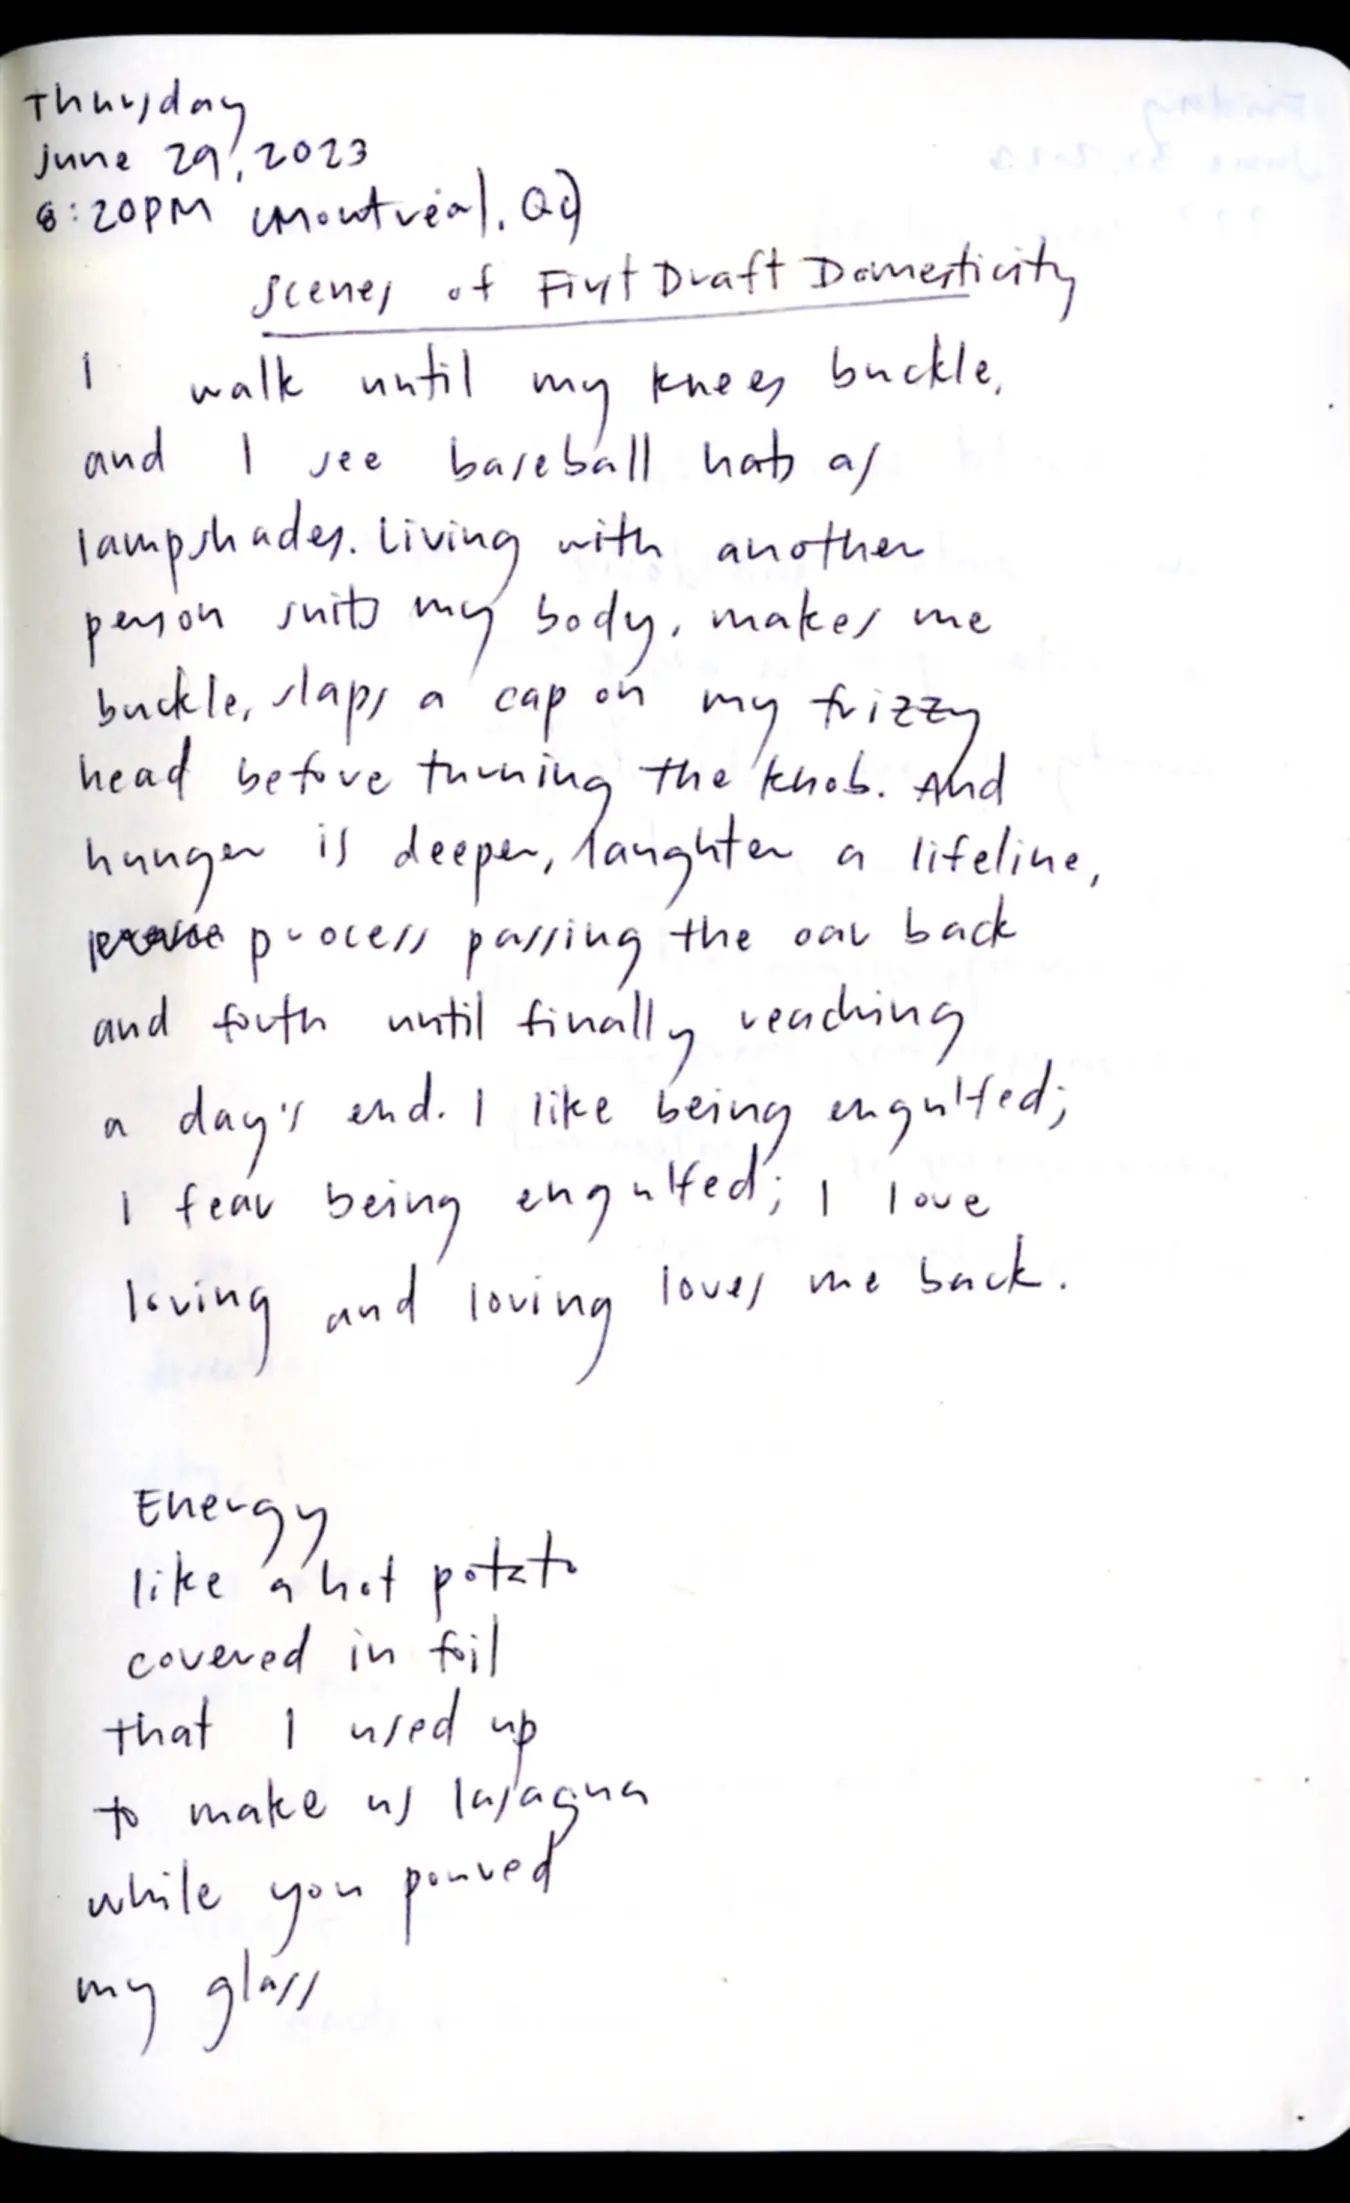 Thursday
June 29, 2023
8:20PM Montréal, QC
Scenes of First Draft Domesticity
I walk until my knees buckle,
and I see baseball hats as
lampshades. Living with another
person suits my body, makes me
buckle, slaps a cap on my frizzy
head before turning the knob. And
hunger is deeper, laughter a lifeline,
process passing the oar back
and forth until finally reaching
a day's end. I like being engulfed;
I fear being engulfed; I love
loving and loving loves me back.
Energy
like a hot potato
covered in foil
that I used up
to make us lasagna
while you poured
my glass